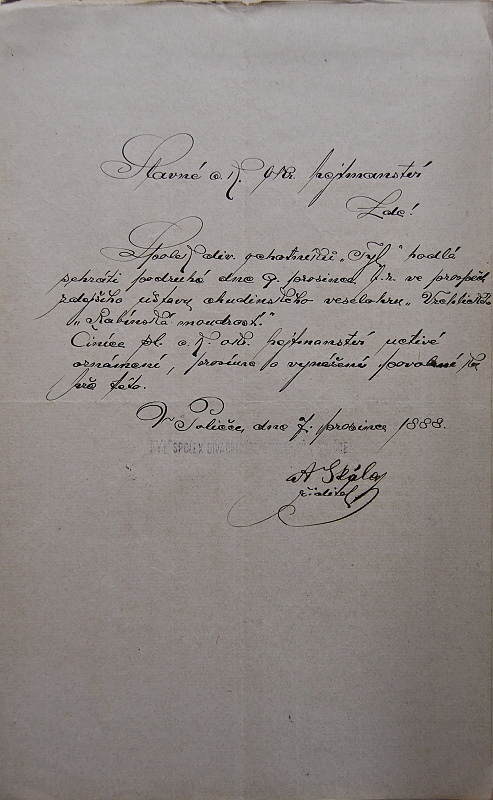 Slavné c. k. okr. hejtmanství
Zde!
Spolek div. ochotníků „Tyl“ hodlá
sehráti podruhé dne 9. prosince t. r. ve prospěch
zdejšího ústavu chudinského veselohru Vrchlického
„Rabínská moudrost.“
Činíce sl. c. k. okr. hejtmanství uctivé
oznámení, prosíme o vynešení povolení ku
hře této.
V Poličce, dne 7. prosince 1888.
SPOLEK
A Skála
ředitel